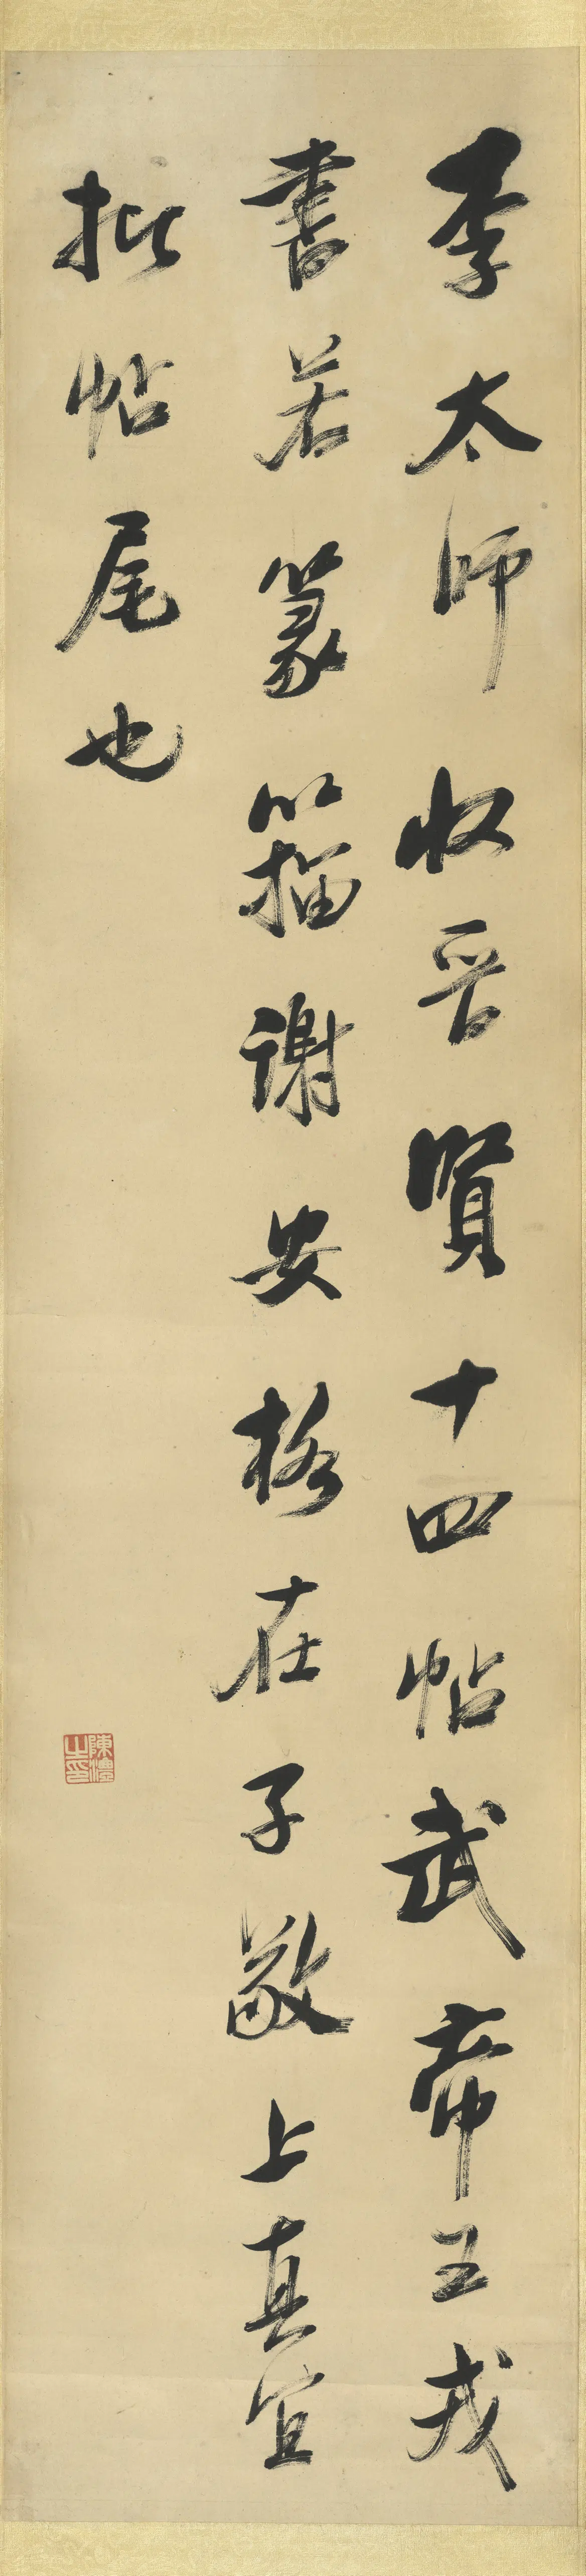 李太師收晉賢十四帖武帝王戎
書若篆籀謝安格在子敬上真宜
批帖尾也
陳澧之印